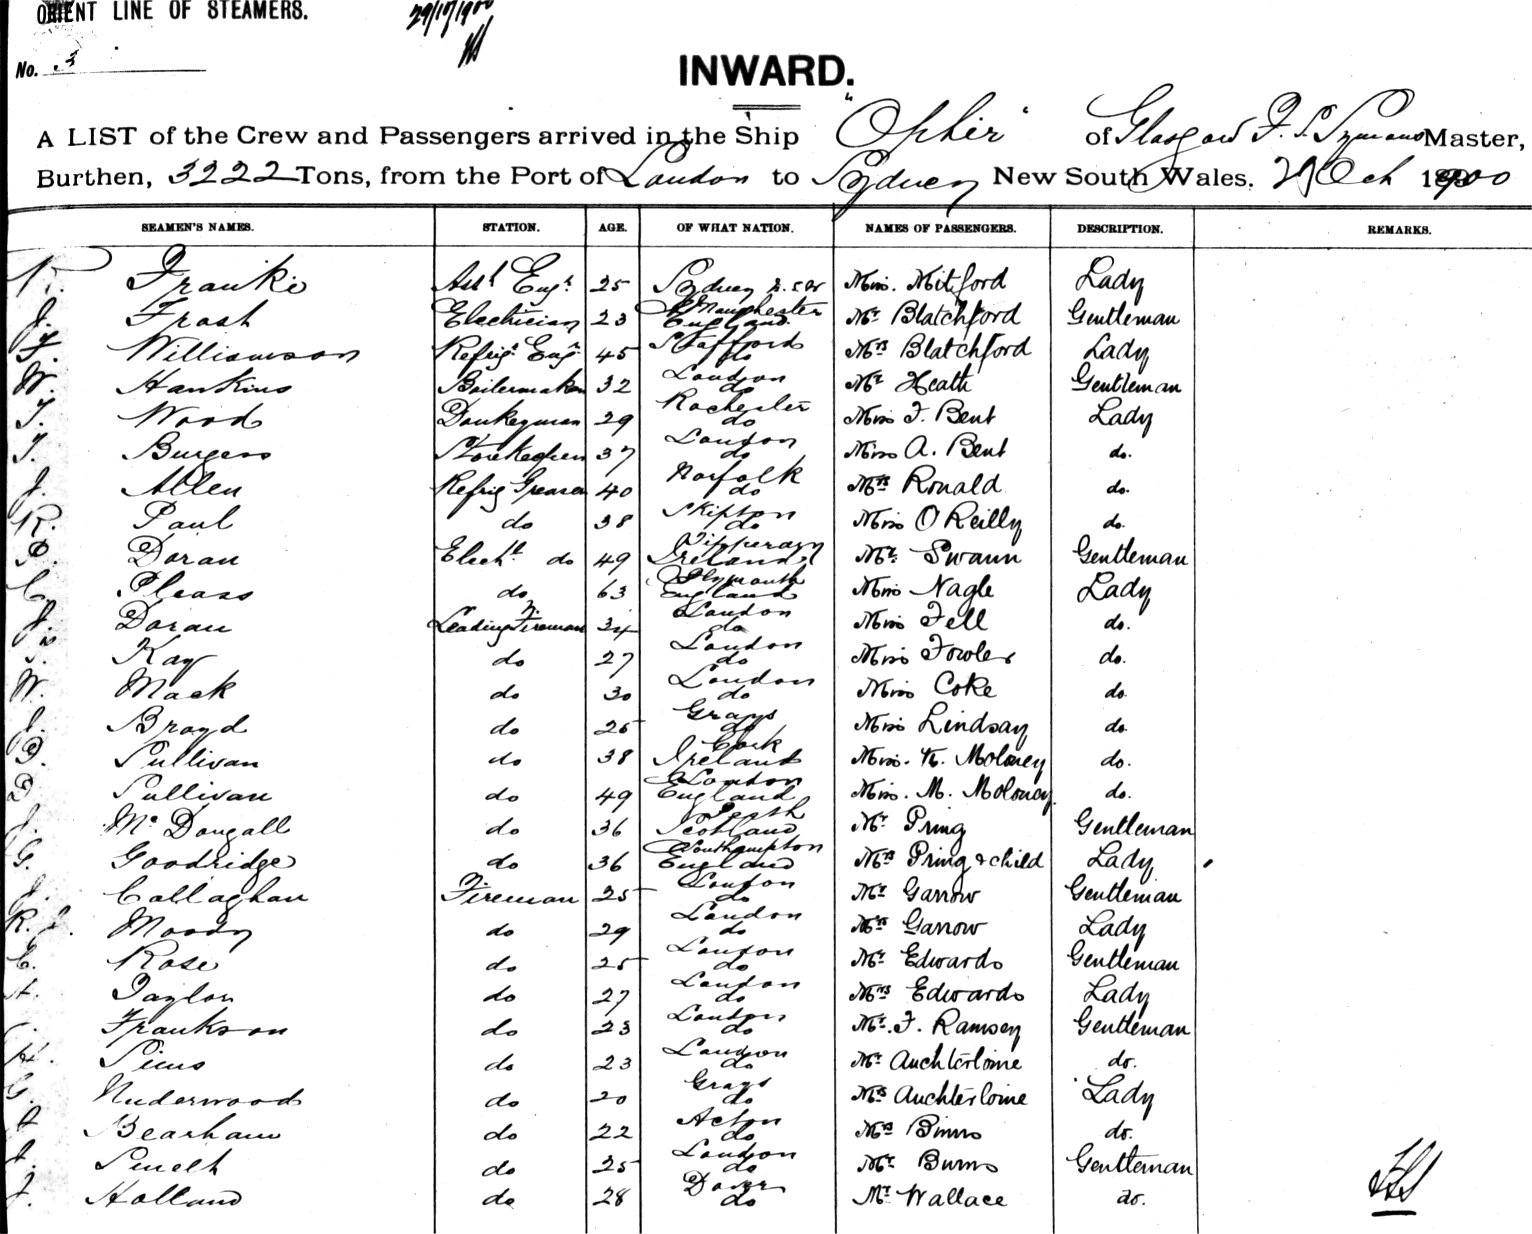 ORIENT LINE OF STEAMERS.
29/10/1900
No. 3
INWARD.
A LIST of the Crew and Passengers arrived in the Ship "Ophir" of Glasgow F. S. Symons Master,
Burthen, 3222 Tons, from the Port of London to Sydney New South Wales, 29 Oct 1900
SEAMEN'S NAMES. STATION. AGE. OF WHAT NATION. NAMES OF PASSENGERS. DESCRIPTION. REMARKS.
R. Franki Asst Engr 25 Sydney N.S.W Miss. Mitford Lady
J. Frost Electrician 23 Manchester England Mr Blatchford Gentleman
Williamson Refrigr Engr 45 Stafford do Mrs Blatchford Lady
W. Hawkins Boilermaker 32 London do Mr Heath Gentleman
T. Wood Donkeyman 29 Rochester do Miss F. Bent Lady
T. Burgess Storekeeper 37 London do Miss A. Bent do.
J. Allen Refrig Greaser 40 Norfolk do Mrs Ronald do.
R. Paul do 38 Skipton do Miss O'Reilly do.
P. Doran Elect. do 49 Tipperary Ireland Mr Swann Gentleman
C. Pleass do 63 Plymouth England Miss Nagle Lady
J. Doran Leading Fireman 34 London do Miss Fell do.
Kay do 27 London do Miss Fowler do.
W. Mack do 30 London do Miss Coke do.
J. Broyd do 25 Grays do Miss Lindsay do.
D. Sullivan do 38 Cork Ireland Miss. K. Moloney do.
D Sullivan do 49 London England Miss. M. Moloney do.
J. Mc Dougall do 36 Perth Scotland Mr Pring Gentleman
G. Goodridge do 36 Southampton England Mrs Pring & child Lady
J. Callaghan Fireman 25 London do Mr Garrow Gentleman
R. J. Moody do 29 London do Mrs Garrow Lady
C. Rose do 25 London do Mr Edwards Gentleman
Taylor do 27 London do Mrs Edwards Lady
Frankson do 23 London do Mr. F. Ramsey Gentleman
H. Sims do 23 London do Mr Auchterlonie do.
G. Underwood do 20 Grays do Mrs Auchterlonie Lady
Bearham do 22 Acton do Mrs Binns do.
J. Smelt do 25 London do Mr Burns Gentleman
J. Holland do 28 Dover do Mr Wallace do.